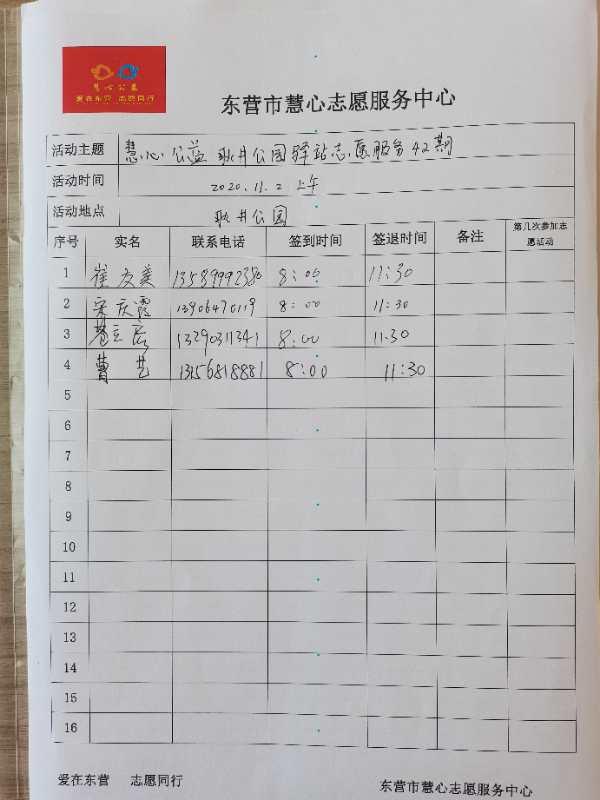 慧心公益
爱在东营 志愿同行
东营市慧心志愿服务中心
活动主题 慧心公益 耿井公园驿站志愿服务42期
活动时间 2020.11.2 上午
活动地点 耿井公园
序号 实名 联系电话 签到时间 签退时间 备注 第几次参加志愿活动
1 崔友美 8:00 11:30
2 宋庆霞 13906470119 8:00 11:30
3 13290311341 8:00 11.30
4 曹艺 13156818881 8:00 11:30
5
6
7
8
9
10
11
12
13
14
15
16
爱在东营 志愿同行
东营市慧心志愿服务中心